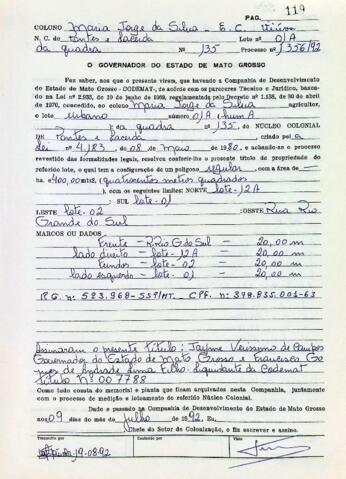 PAG. 119
COLONO Maria Jorge da Silva - E. C. Viúva
N. C. de Pontes e Lacerda Lote n.º 01A
da quadra nº 135 Processo nº 1356/92
O GOVERNADOR DO ESTADO DE MATO GROSSO
Faz saber, aos que o presente virem, que havendo a Companhia de Desenvolvimento
do Estado de Mato Grosso - CODEMAT, de acôrdo com os pareceres Técnico e Jurídico, basea-
do na Lei nº 2.933, de 10 de junho de 1969, regulamentada pelo Decreto nº 1.138, de 30 de abril
de 1970, concedido, ao colono Maria Jorge da Silva agricultor,
o lote urbano nº 01A (hum A
) da quadra nº 135, DO NÚCLEO COLONIAL
DE Pontes e Lacerda criado pela
lei nº 4.183, de 08 de Maio 1980, e achando-se o processo
revestido das formalidades legais, resolveu conferir-lhe o presente título de propriedade do
referido lote, o qual tem a configuração de um polígono regular com a área de —
ha 400,00 mts, (quatrocentos metros quadrados
), com os seguintes limites: NORTE lote-12A
; SUL lote-01
LESTE lote-02 ; OESTE Rua Rio
Grande do Sul
MARCOS OU DADOS
Frente — R. Rio G. do Sul — 20,00 m
lado direito — lote-12A — 20,00 m
Fundos — lote-02 — 20,00 m
lado esquerdo — lote-01 — 20,00 m
R.G. nº: 523.968-SSP/MT. CPF. nº: 378.835.001-63
Assinaram o presente título: Jayme Verissimo de Campos
Governador do Estado de Mato Grosso e Francisco Go
mes de Andrade Lima Filho. liquidante da Codemat
título Nº 007788
Como tudo consta do memorial e planta que ficam arquivados nesta Companhia, juntamente
com o processo de medição e loteamento do referido Núcleo Colonial.
Dado e passado na Companhia de Desenvolvimento do Estado de Mato Grosso
aos 09 dias do mês de julho de 1992. Eu,
Chefe do Setor de Colonização, o fiz escrever e assino.
Transcrito por Conferido por Visto
19-08-92